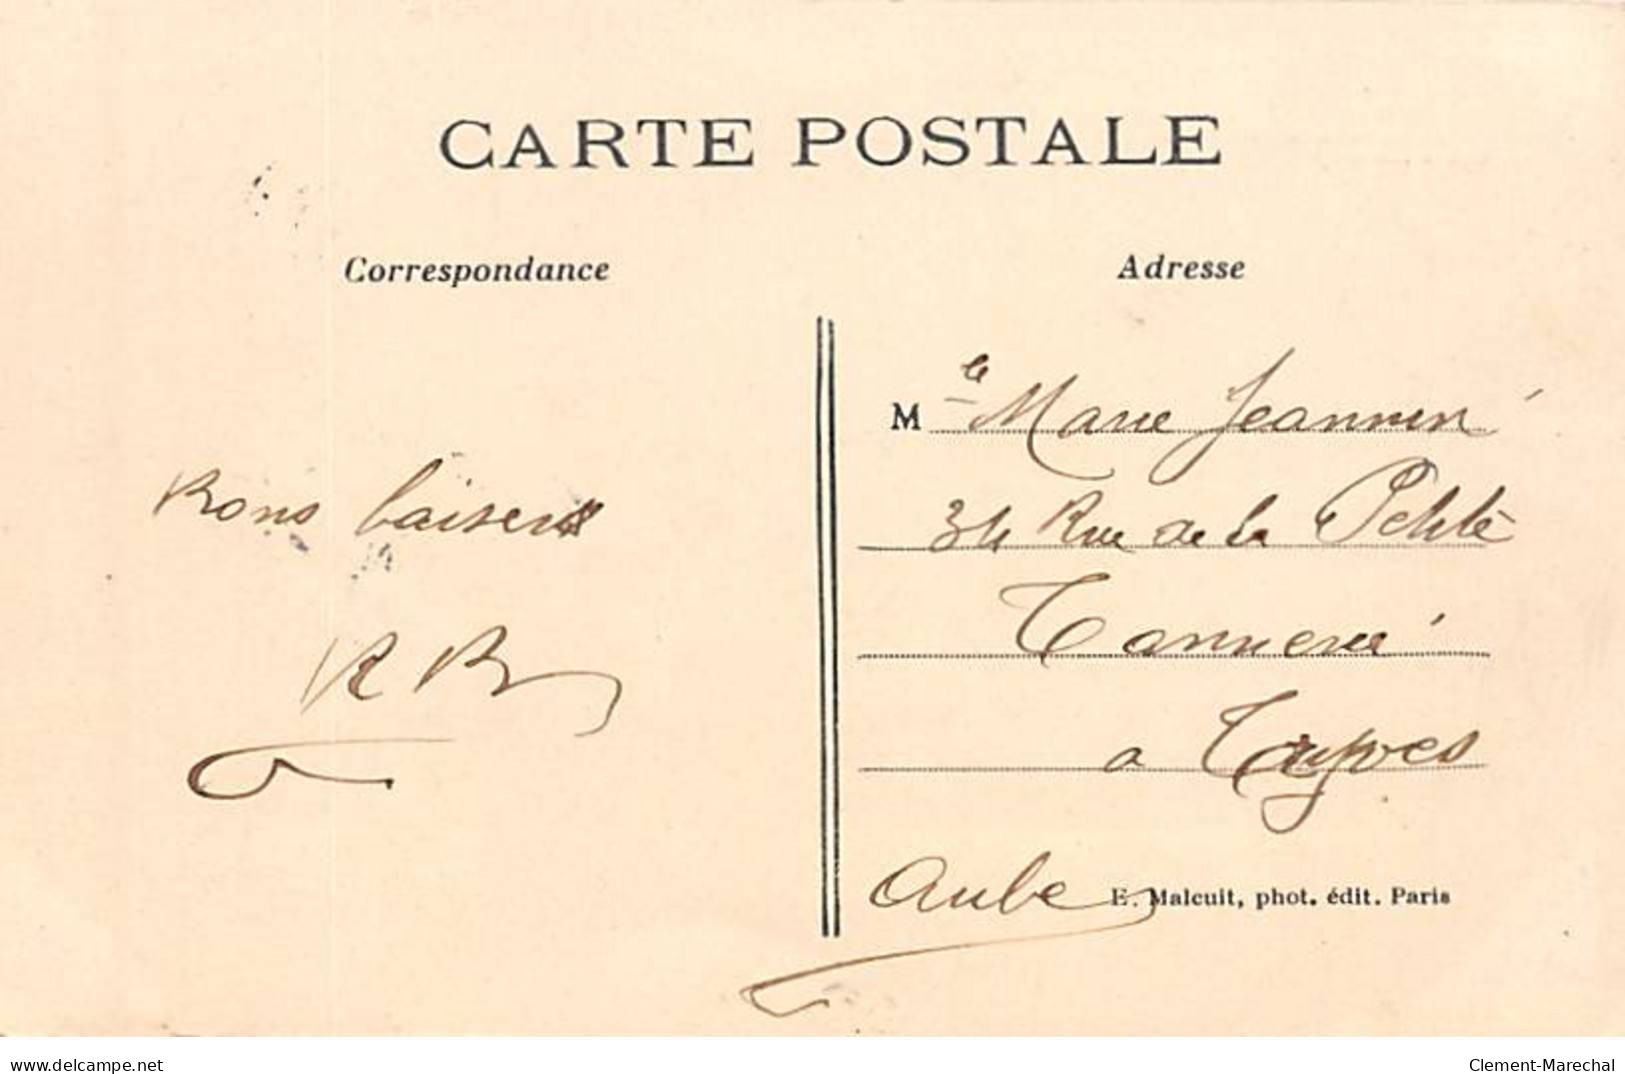 CARTE POSTALE
Correspondance
Adresse
Mle Marie Jeannin
34 Rue de la Petite
Tannerie
a Troyes
Aube
Bons baisers
R B
E. Malcuit, phot. édit. Paris
delcampe.net
Clement-Marechal